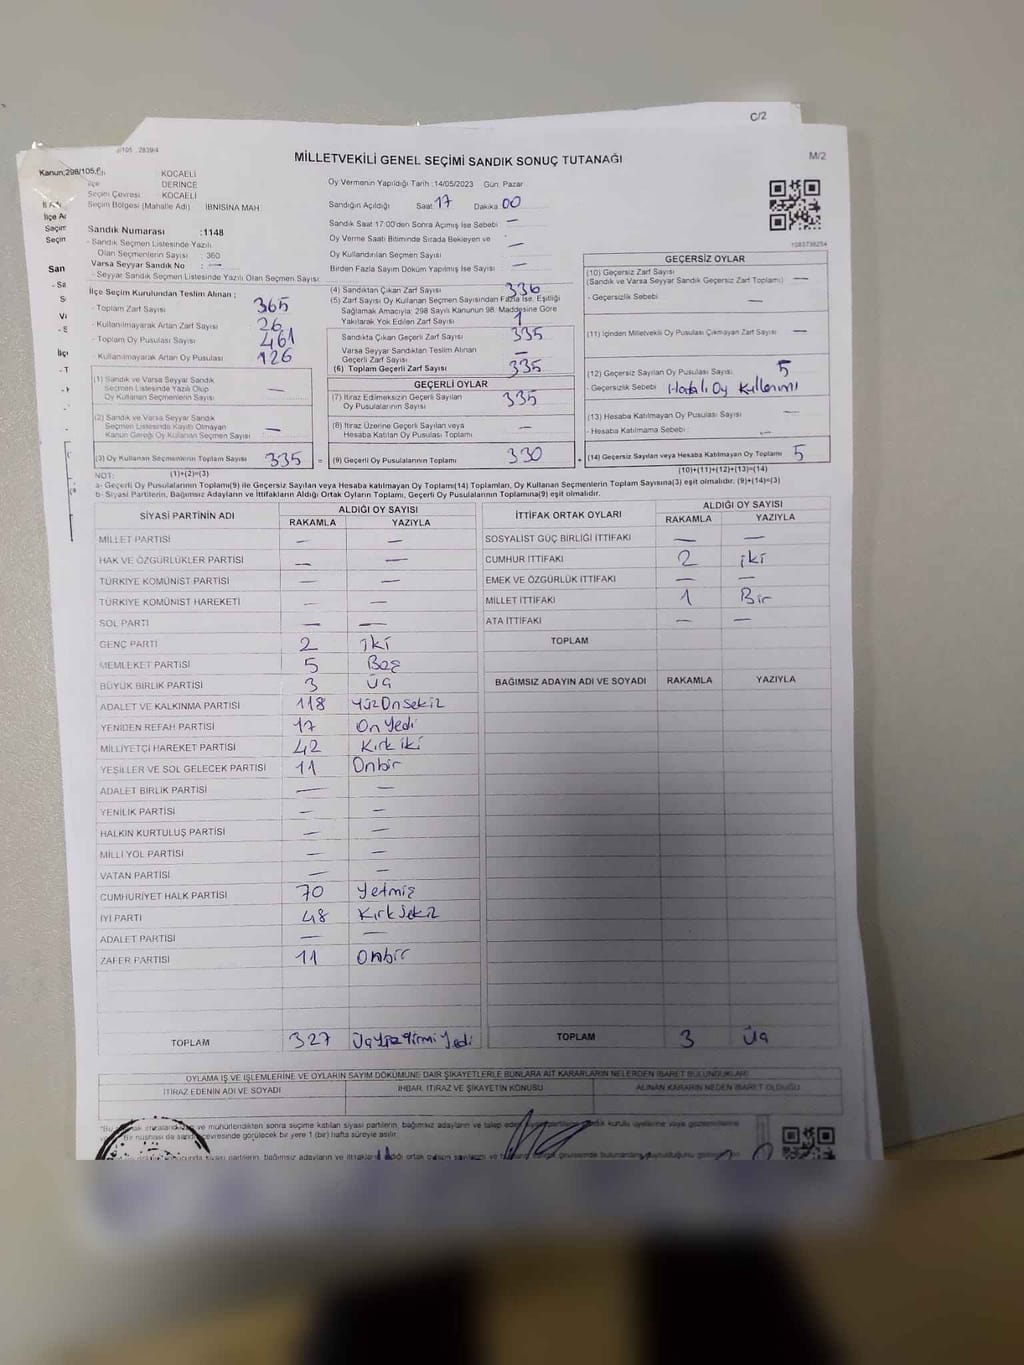 C/2
MİLLETVEKİLİ GENEL SEÇİMİ SANDIK SONUÇ TUTANAĞI
M/2
Kanun,298/105.
KOCAELİ
DERİNCE
Seçim Çevresi KOCAELİ
Seçim Bölgesi (Mahalle Adı) İBNİSİNA MAH
Oy Vermenin Yapıldığı Tarih :14/05/2023 Gün: Pazar
Sandığın Açıldığı Saat 17 Dakika 00
Sandık Saat 17:00'den Sonra Açılmış İse Sebebi —
Oy Verme Saati Bitiminde Sırada Bekleyen ve
Oy Kullandırılan Seçmen Sayısı —
Birden Fazla Sayım Döküm Yapılmış İse Sayısı —
Sandık Numarası :1148
- Sandık Seçmen Listesinde Yazılı
Olan Seçmenlerin Sayısı : 360
Varsa Seyyar Sandık No : —
- Seyyar Sandık Seçmen Listesinde Yazılı Olan Seçmen Sayısı:
İlçe Seçim Kurulundan Teslim Alınan :
- Toplam Zarf Sayısı 365
- Kullanılmayarak Artan Zarf Sayısı 26
- Toplam Oy Pusulası Sayısı 461
- Kullanılmayarak Artan Oy Pusulası 126
(1) Sandık ve Varsa Seyyar Sandık
Seçmen Listesinde Yazılı Olup
Oy Kullanan Seçmenlerin Sayısı —
(2) Sandık ve Varsa Seyyar Sandık
Seçmen Listesinde Kayıtlı Olmayan
Kanun Gereği Oy Kullanan Seçmen Sayısı —
(3) Oy Kullanan Seçmenlerin Toplam Sayısı 335
(1)+(2)=(3)
(4) Sandıktan Çıkan Zarf Sayısı 336
(5) Zarf Sayısı Oy Kullanan Seçmen Sayısından Fazla İse, Eşitliği
Sağlamak Amacıyla; 298 Sayılı Kanunun 98. Maddesine Göre
Yakılarak Yok Edilen Zarf Sayısı 1
Sandıkta Çıkan Geçerli Zarf Sayısı 335
Varsa Seyyar Sandıktan Teslim Alınan
Geçerli Zarf Sayısı —
(6) Toplam Geçerli Zarf Sayısı 335
GEÇERLİ OYLAR
(7) İtiraz Edilmeksizin Geçerli Sayılan
Oy Pusulalarının Sayısı 335
(8) İtiraz Üzerine Geçerli Sayılan veya
Hesaba Katılan Oy Pusulası Toplamı —
= (9) Geçerli Oy Pusulalarının Toplamı 330
1083736254
GEÇERSİZ OYLAR
(10) Geçersiz Zarf Sayısı
(Sandık ve Varsa Seyyar Sandık Geçersiz Zarf Toplamı) —
- Geçersizlik Sebebi —
(11) İçinden Milletvekili Oy Pusulası Çıkmayan Zarf Sayısı —
(12) Geçersiz Sayılan Oy Pusulası Sayısı 5
- Geçersizlik Sebebi Hatalı Oy Kullanımı
(13) Hesaba Katılmayan Oy Pusulası Sayısı —
- Hesaba Katılmama Sebebi —
+ (14) Geçersiz Sayılan veya Hesaba Katılmayan Oy Toplamı 5
(10)+(11)+(12)+(13)=(14)
NOT:
a- Geçerli Oy Pusulalarının Toplamı(9) ile Geçersiz Sayılan veya Hesaba katılmayan Oy Toplamı(14) Toplamları, Oy Kullanan Seçmenlerin Toplam Sayısına(3) eşit olmalıdır. (9)+(14)=(3)
b- Siyasi Partilerin, Bağımsız Adayların ve İttifakların Aldığı Ortak Oyların Toplamı, Geçerli Oy Pusulalarının Toplamına(9) eşit olmalıdır.
SİYASİ PARTİNİN ADI ALDIĞI OY SAYISI
RAKAMLA YAZIYLA
MİLLET PARTİSİ — —
HAK VE ÖZGÜRLÜKLER PARTİSİ — —
TÜRKİYE KOMÜNİST PARTİSİ — —
TÜRKİYE KOMÜNİST HAREKETİ — —
SOL PARTİ — —
GENÇ PARTİ 2 iki
MEMLEKET PARTİSİ 5 Beş
BÜYÜK BİRLİK PARTİSİ 3 üç
ADALET VE KALKINMA PARTİSİ 118 YüzOnsekiz
YENİDEN REFAH PARTİSİ 17 On Yedi
MİLLİYETÇİ HAREKET PARTİSİ 42 Kırk iki
YEŞİLLER VE SOL GELECEK PARTİSİ 11 Onbir
ADALET BİRLİK PARTİSİ — —
YENİLİK PARTİSİ — —
HALKIN KURTULUŞ PARTİSİ — —
MİLLİ YOL PARTİSİ — —
VATAN PARTİSİ — —
CUMHURİYET HALK PARTİSİ 70 Yetmiş
İYİ PARTİ 48 Kırk Sekiz
ADALET PARTİSİ — —
ZAFER PARTİSİ 11 Onbir
TOPLAM 327 ÜçyüzYirmi Yedi
İTTİFAK ORTAK OYLARI ALDIĞI OY SAYISI
RAKAMLA YAZIYLA
SOSYALİST GÜÇ BİRLİĞİ İTTİFAKI — —
CUMHUR İTTİFAKI 2 iki
EMEK VE ÖZGÜRLÜK İTTİFAKI — —
MİLLET İTTİFAKI 1 Bir
ATA İTTİFAKI — —
TOPLAM
BAĞIMSIZ ADAYIN ADI VE SOYADI RAKAMLA YAZIYLA
TOPLAM 3 üç
OYLAMA İŞ VE İŞLEMLERİNE VE OYLARIN SAYIM DÖKÜMÜNE DAİR ŞİKAYETLERLE BUNLARA AİT KARARLARIN NELERDEN İBARET BULUNDUKLARI
İTİRAZ EDENİN ADI VE SOYADI İHBAR, İTİRAZ VE ŞİKAYETİN KONUSU ALINAN KARARIN NEDEN İBARET OLDUĞU
ve mühürlendikten sonra seçime katılan siyasi partilerin, bağımsız adayların ve talep eden
çevresinde görülecek bir yere 1 (bir) hafta süreyle asılır.